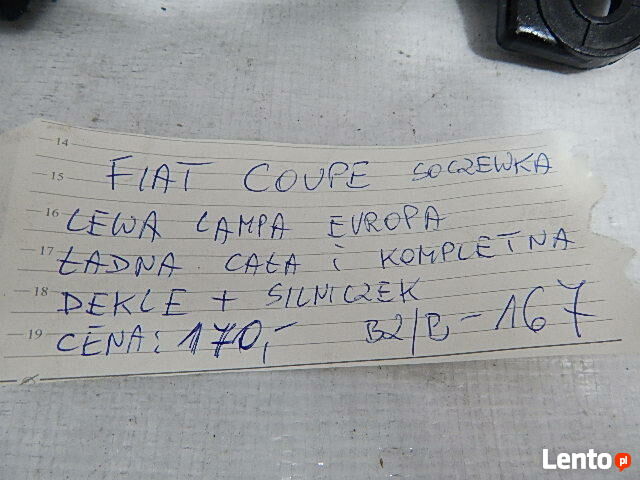 14
FIAT COUPE SOCZEWKA
15
16 LEWA LAMPA EVROPA
17 ŁADNA CAŁA i KOMPLETNA
18 DEKLE + SILNICZEK
19 CENA: 170,- B2/B-167
Lento.pl